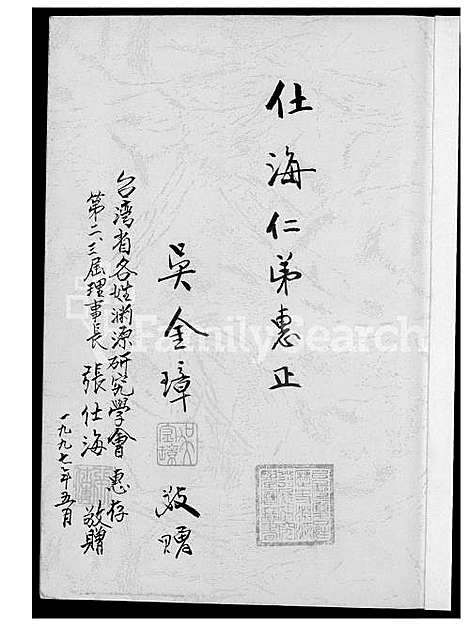 仕海仁弟惠正
吳金璋 敬贈
台湾省各姓渊源研究學會 惠存
第二、三届理事長 張仕海 敬贈
一九九七年五月
FamilySearch